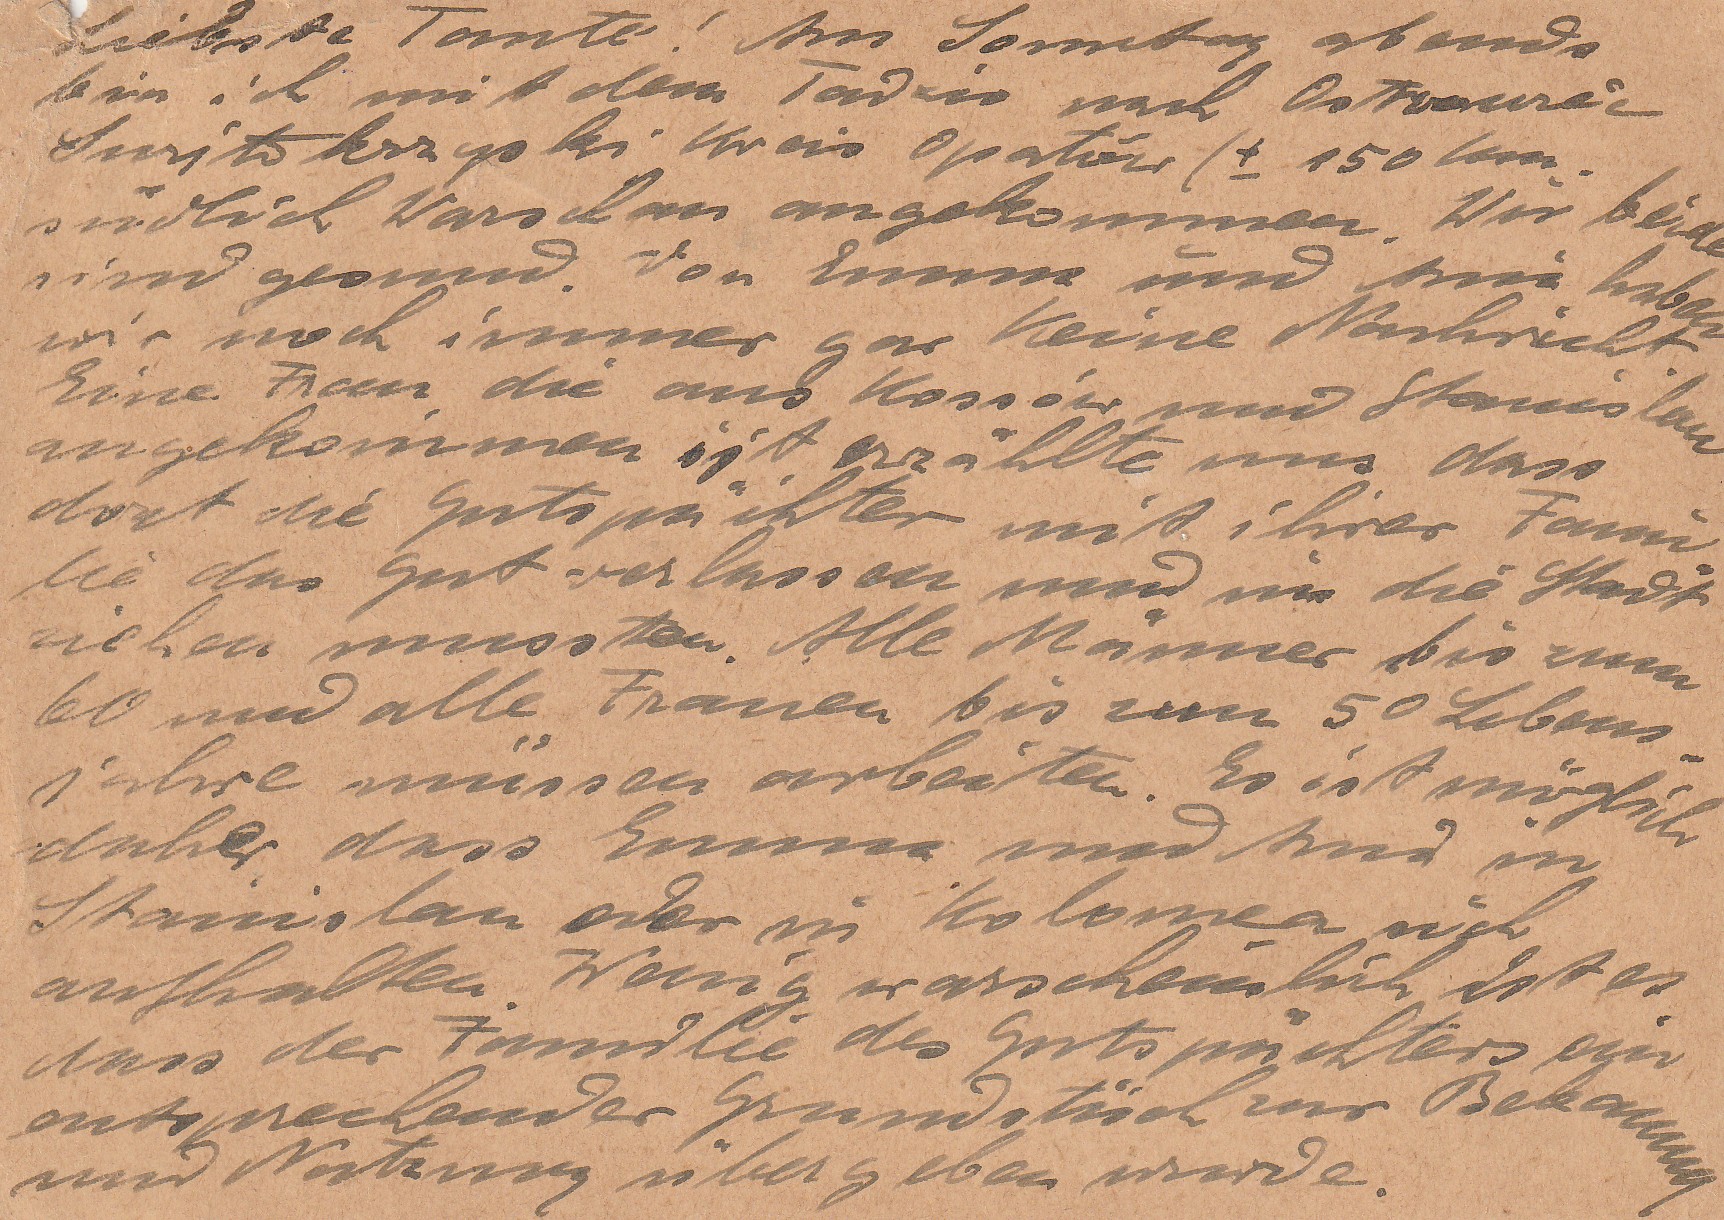 Liebste Tante! Am Sonntag abends
bin ich mit dem Tadzio nach Ostrowiec
Swiętokrzyski Kreis Opatów (± 150 Km.
südlich Warschau angekommen. Wir beide
sind gesund. Von Emma und haben
wir noch immer gar keine Nachricht.
Eine Frau die aus Kossów und Stanislau
angekommen ist erzählte uns dass
dort die Gutspächter mit ihrer Fami
lie das Gut verlassen und in die Stadt
ziehen mussten. Alle Männer bis zum
60 und alle Frauen bis zum 50 Lebens-
jahre müssen arbeiten. Es ist möglich
daher, dass Emma und in
Stanislau oder in Kolomea sich
aufhalten. Wenig warscheinlich ist es
dass der Familie des Gutspächters ein
entsprechender Grundstück zur Bebauung
und Nutzung übergeben wurde.